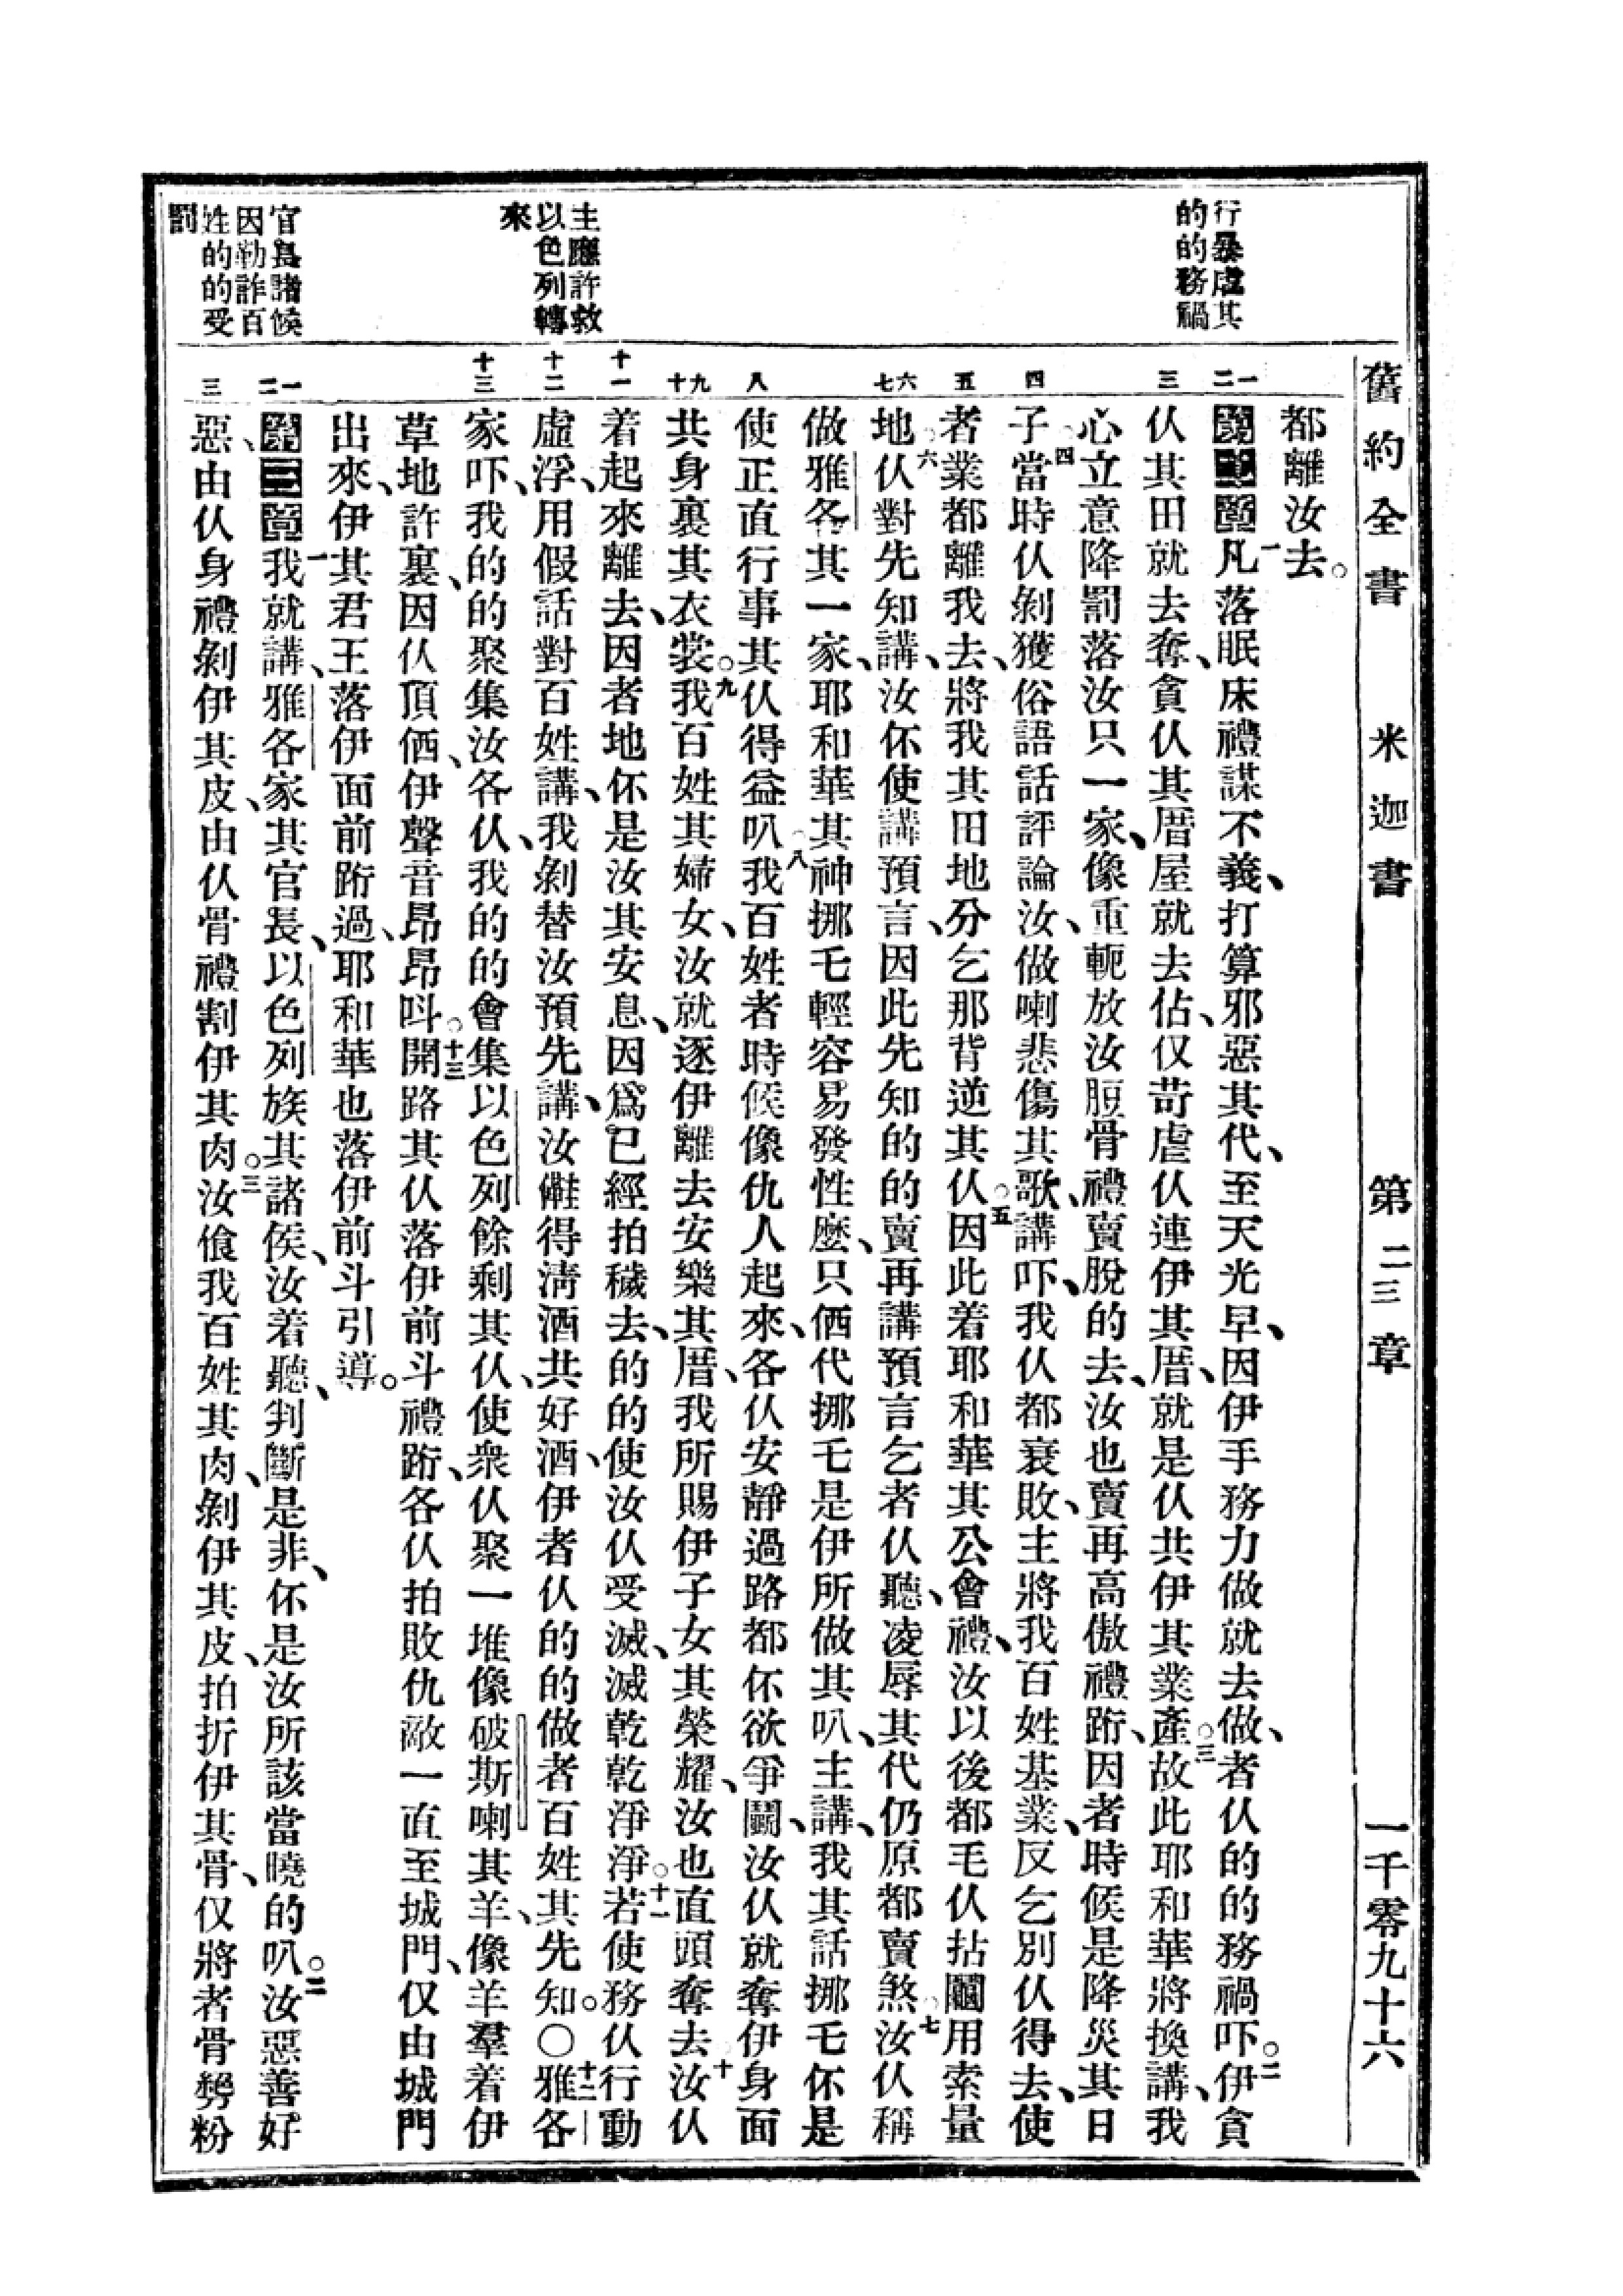 舊約全書　米迦書　第二三章　一千零九十六
行暴虐其
的的務禍
主應許救
以色列轉
來
官長諸候
因勒詐百
姓的的受
罰
都離汝去。
第二章一凡落眠床禮謀不義、打算邪惡其代、至天光早、因伊手務力做就去做、者仈的的務禍吓。二伊貪
仈其田就去奪、貪仈其厝屋就去佔、仅苛虐仈連伊其厝、就是仈共伊其業產。三故此耶和華將換講、我
心立意降罰落汝只一家、像重軛放汝脰骨禮賣脫的去、汝也賣再高傲禮跻、因者時候是降災其日
子。四當時仈剝獲俗語話評論汝、做喇悲傷其歌、講吓、我仈都衰敗、主將我百姓基業、反乞別仈得去、使
者業都離我去、將我其田地分乞那背逆其仈。五因此着耶和華其公會禮、汝以後都毛仈拈鬮用索量
地。六仈對先知講、汝伓使講預言、因此先知的的賣再講預言乞者仈聽、凌辱其代仍原都賣煞。七汝仈稱
做雅各其一家、耶和華其神挪乇輕容易發性麼、只価代挪乇是伊所做其叭、主講、我其話挪乇伓是
使正直行事其仈得益叭。八我百姓者時候像仇人起來、各仈安靜過路都伓欲爭鬬、汝仈就奪伊身面
共身裏其衣裳。九我百姓其婦女、汝就逐伊離去安樂其厝、我所賜伊子女其榮耀、汝也直頭奪去。十汝仈
着起來離去、因者地伓是汝其安息、因爲已經拍穢去、的的使汝仈受滅、滅乾乾淨淨。十一若使務仈行動
虛浮、用假話對百姓講、我剝替汝預先講、汝儺得淸酒共好酒、伊者仈的的做者百姓其先知。〇十二雅各
家吓、我的的聚集汝各仈、我的的會集以色列餘剩其仈、使衆仈聚一堆像破斯喇其羊、像羊羣着伊
草地許裏、因仈頂価、伊聲音昂昂呌。十三開路其仈落伊前斗禮跻、各仈拍敗仇敵一直至城門、仅由城門
出來、伊其君王落伊面前跻過、耶和華也落伊前斗引導。
第三章一我就講、雅各家其官長、以色列族其諸侯、汝着聽、判斷是非、伓是汝所該當曉的叭。二汝惡善好
惡、由仈身禮剝伊其皮、由仈骨禮割伊其肉。三汝食我百姓其肉、剝伊其皮、拍折伊其骨、仅將者骨剺粉